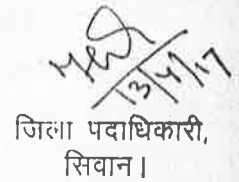 13/4/17
जिला पदाधिकारी,
सिवान।